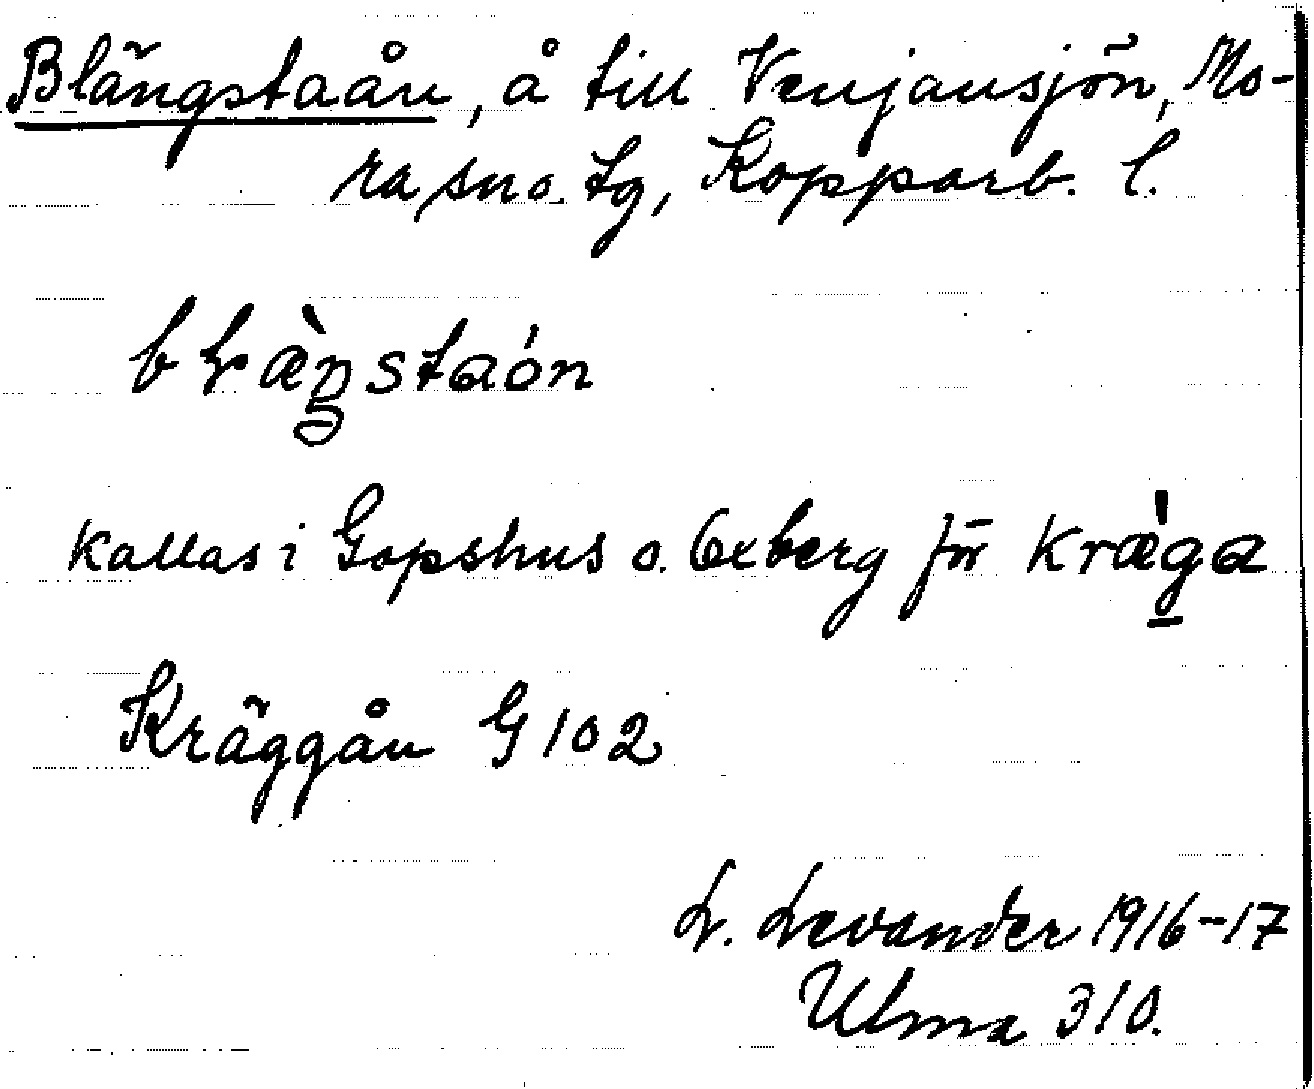 Blängstaån, å till Venjansjön, Mo-
ra sno. tg, Kopparb. l.
blæ̀ŋstaón
kallas i Gopshus o. Oxberg för kræ̀ga
Kräggån G 102
L. Levander 1916-17
Ulma 310.